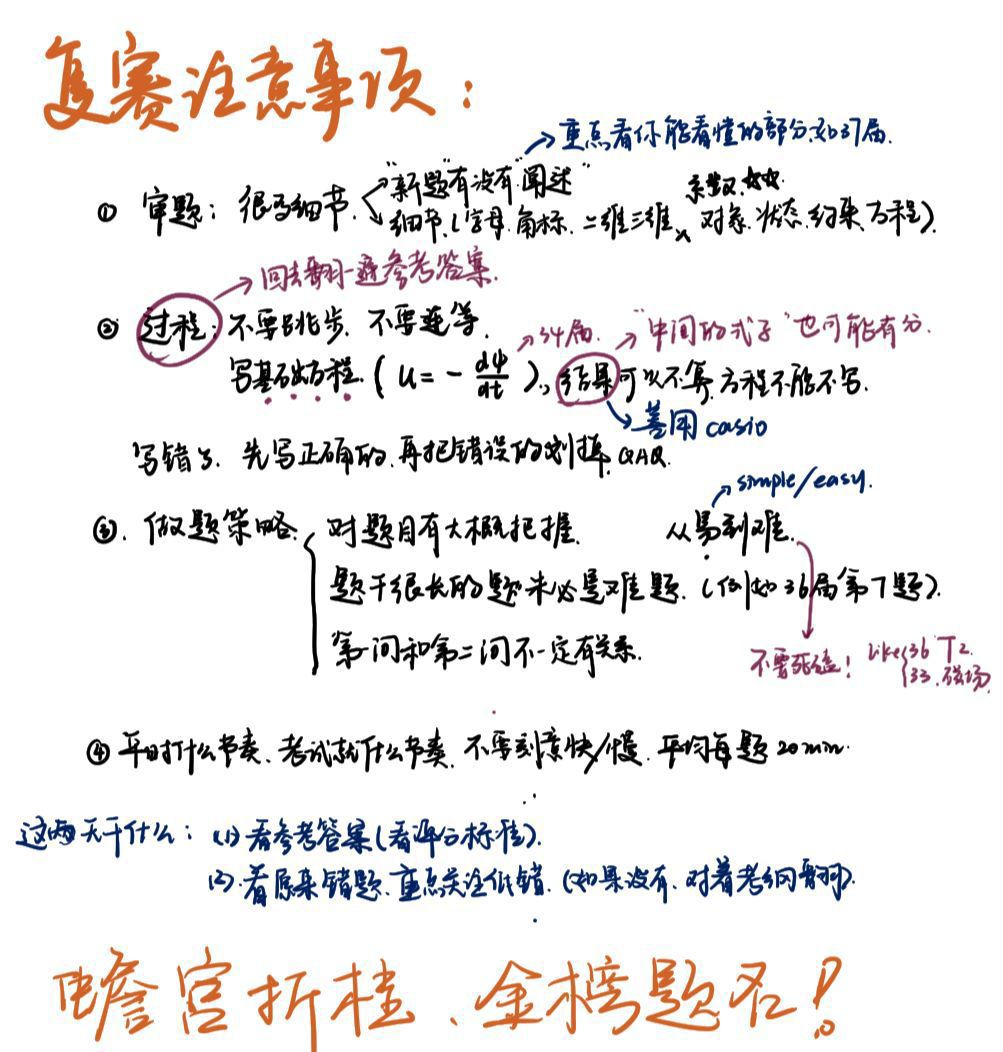 复赛注意事项：
→重点看你能看懂的部分.如37届.
① 审题：很多细节. "新题"有没有"阐述"
系数.☆☆.
细节.(字母.角标.二维三维、对象.状态.约束.方程).
→回去翻一遍参考答案.
② 过程：不要跳步. 不要连等.
→34届. →"中间的式子"也可能有分.
写基础方程.(u=-dψ/dt)、结果可以不算.方程不能不写.
→善用casio
写错了. 先写正确的.再把错误的划掉.QAQ.
→simple/easy.
③. 做题策略. 对题目有大概把握. 从易到难.
题干很长的题未必是难题.(例如36届第7题).
第一问和第二问不一定有关系.
不要死磕! Like 36 T2.
33.磁场.
④ 平时什么节奏、考试就什么节奏.不要刻意快/慢.平均每题20min.
这两天干什么：(1)看参考答案(看评分标准).
(2).看原来错题.重点关注低错.(如果没有.对着考纲翻).
蟾宫折桂、金榜题名!